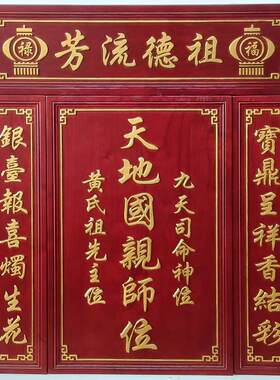 福
祖德流芳
祿
寶鼎呈祥香結彩
九天司命神位
天地國親師位
黃氏祖先主位
銀臺報喜燭生花